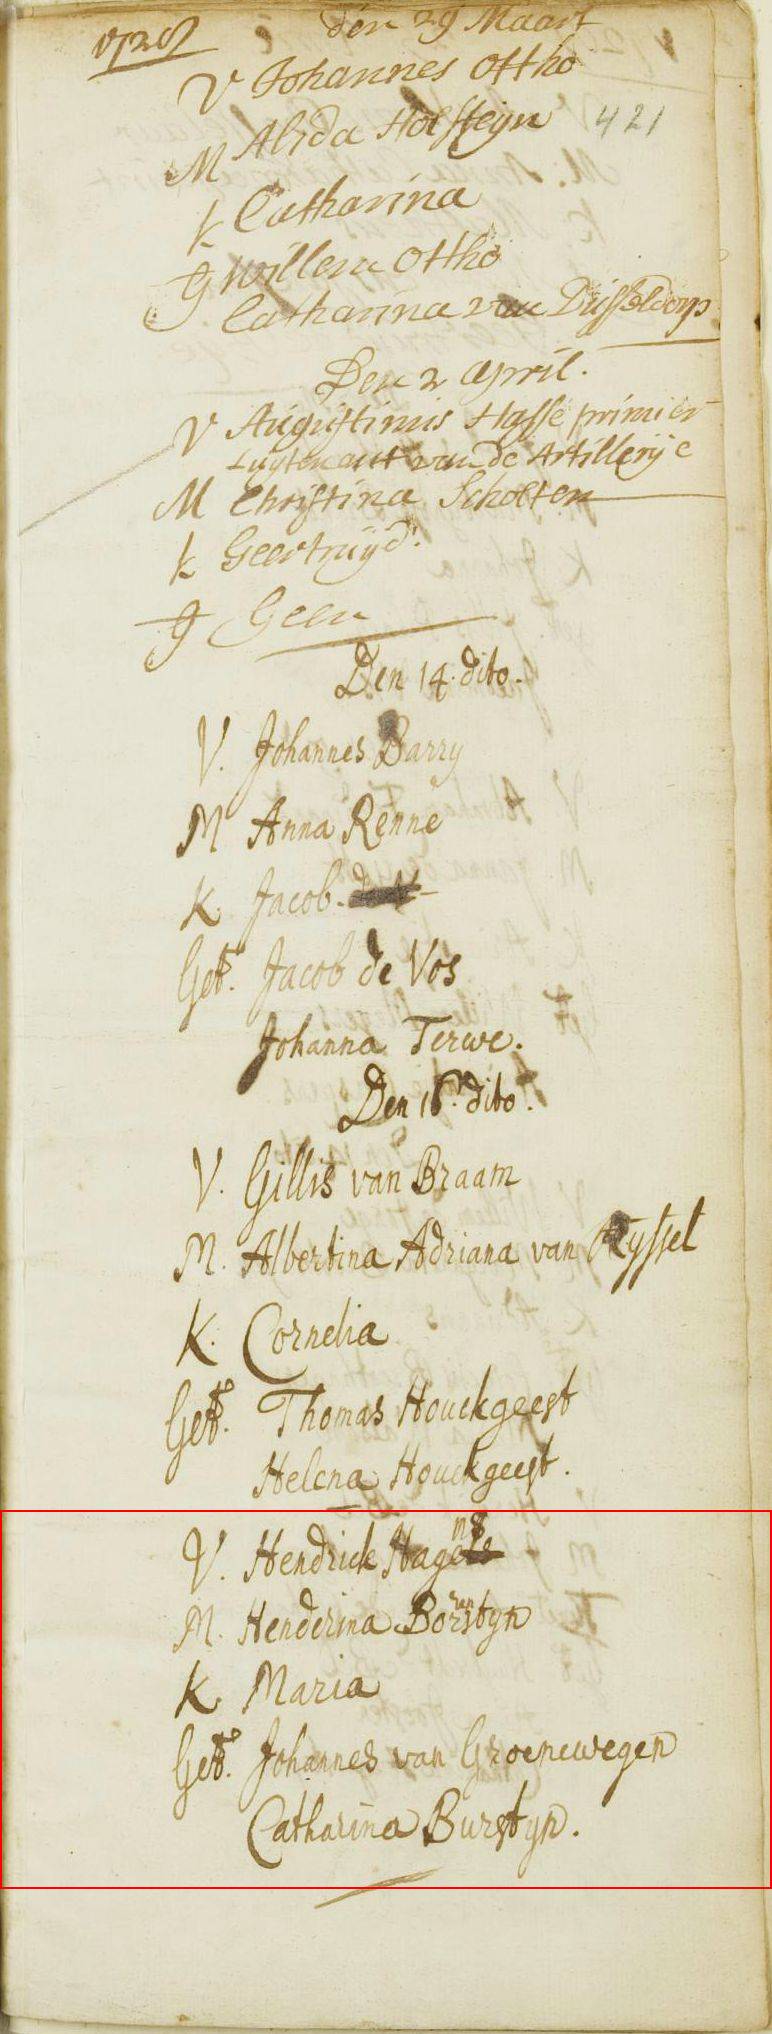 1728
den 29 Maart
V Johannes Ottho
421
M Alida Holsteijn
k Catharina
g Willem Ottho
Catharina van Dusseldorp
Den 2 april.
V Augustinus Hasse primier
Luytenant van de Artillerije
M Christina Scholten
k Geertruijd.
g Geen
Den 14. dito.
V. Johannes Barry
M Anna Renne
K. Jacob.
Get. Jacob de Vos
Johanna Terwe.
Den 16. dito.
V. Gillis van Braam
M. Albertina Adriana van Ryssel
K. Cornelia
Get. Thomas Houckgeest
Helena Houckgeest.
V. Hendrick
M. Henderina Borstyn
K. Maria
Get. Johannes van Groenewegen
Catharina Burstyn.